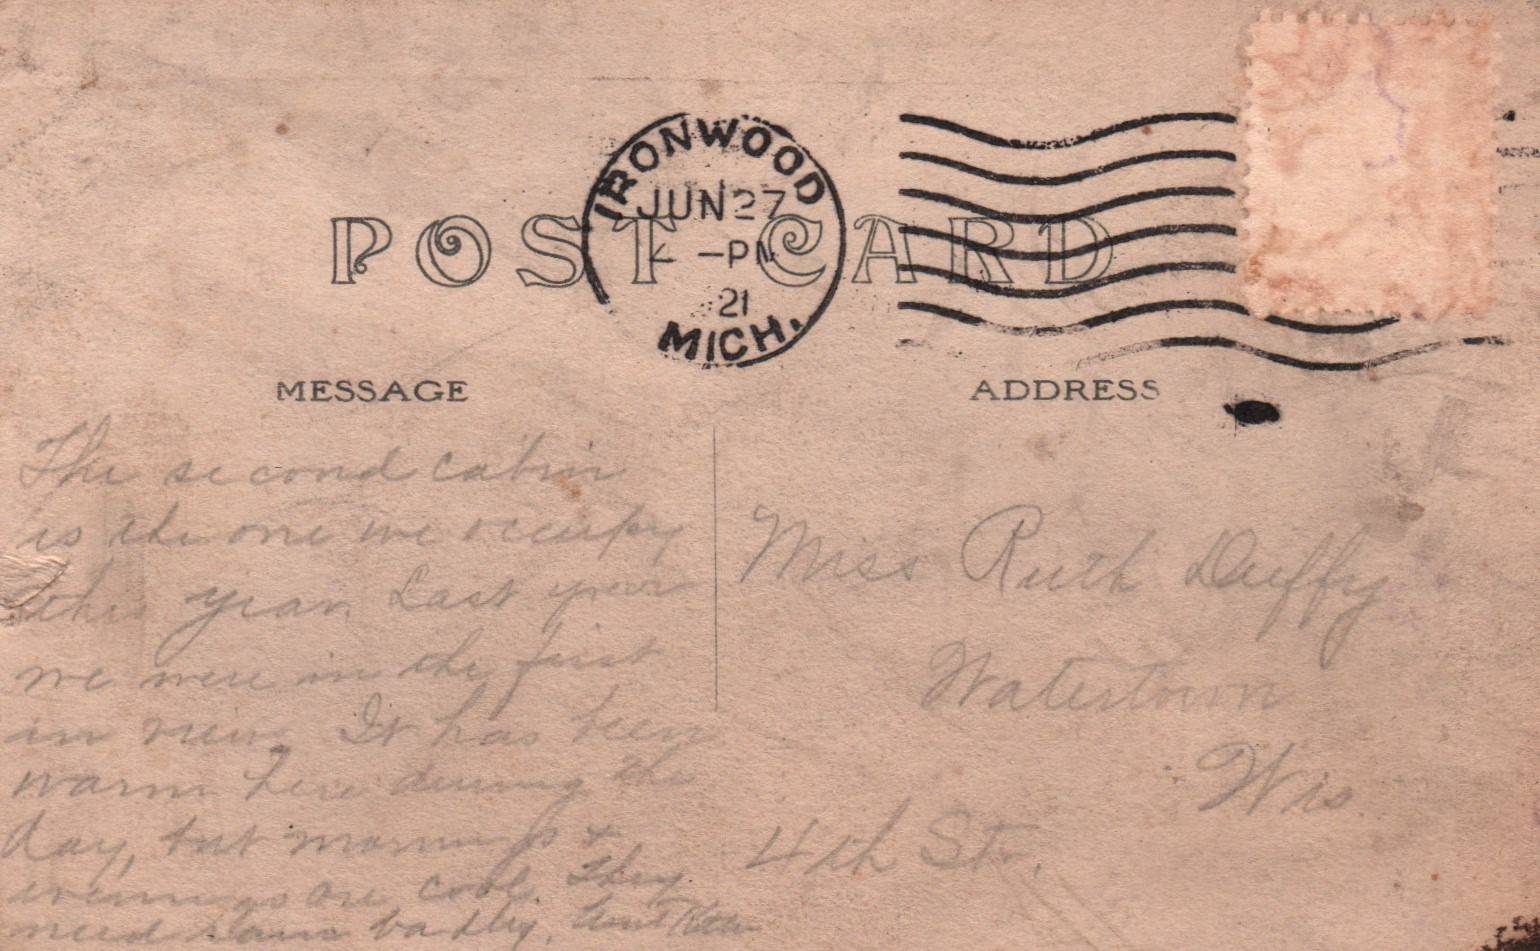 IRONWOOD
JUN 27
-PM
21
MICH.
POST CARD
MESSAGE
ADDRESS
The second cabin
is the one we occupy
this year. Last year
we were in the first
in view. It has been
warm here during the
day, but mornings &
evenings are cool. They
need rain badly. Aunt
Miss Ruth Duffy
Watertown
Wis.
4th St.